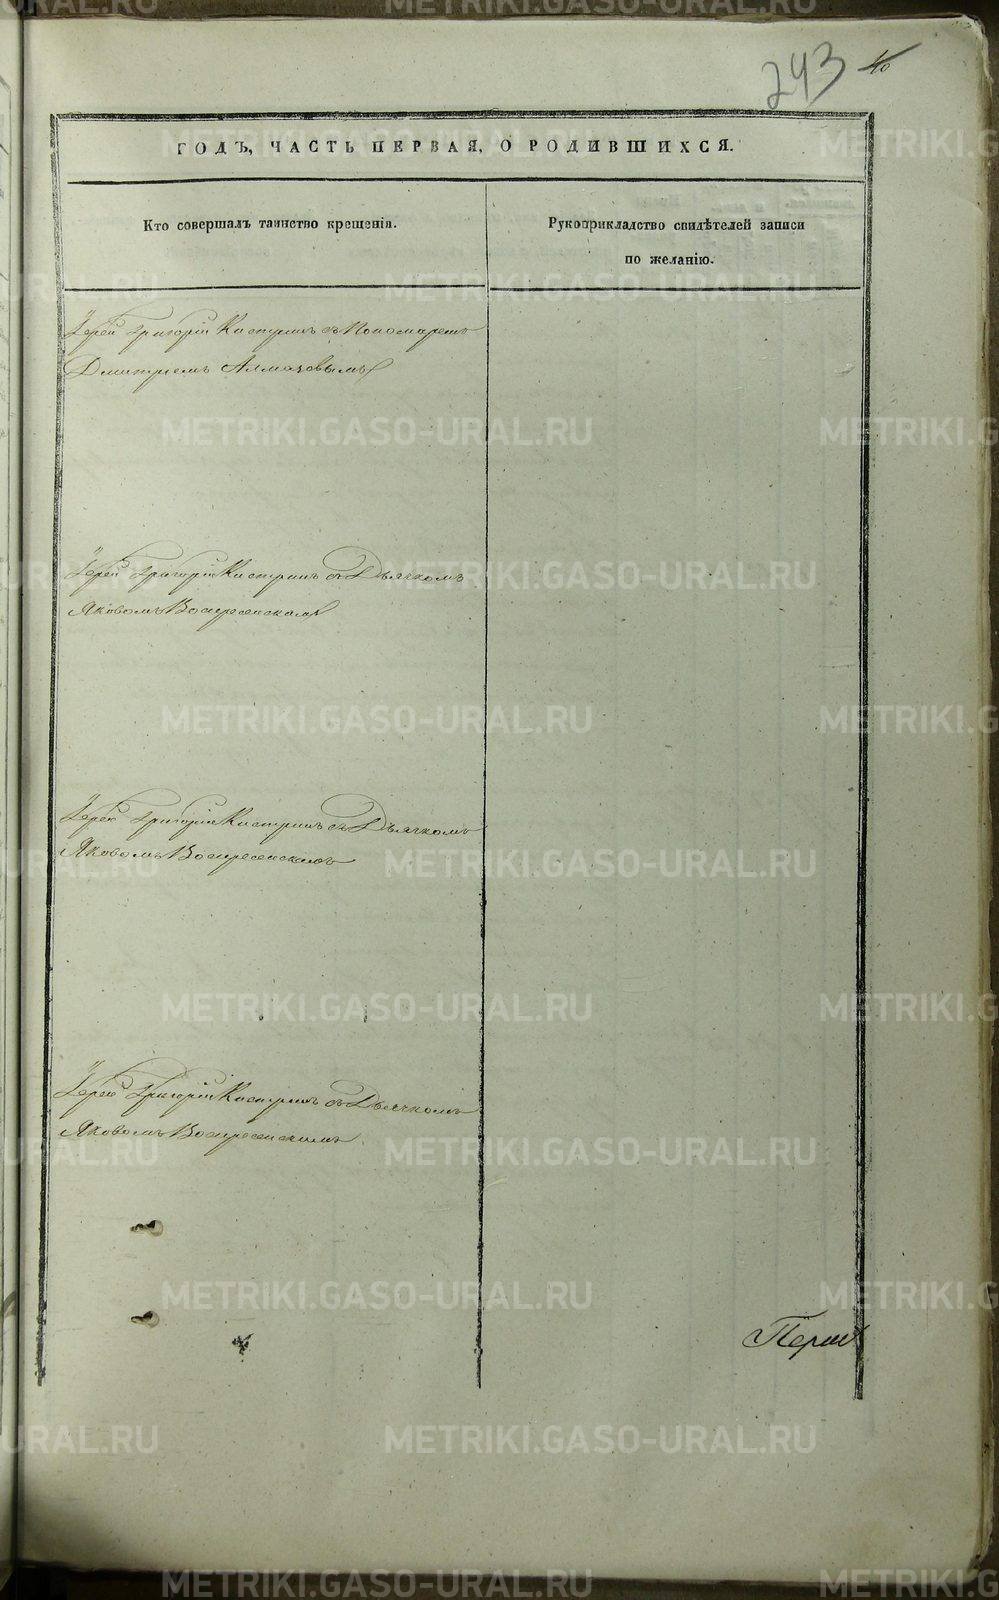 243 40
ГОДЪ, ЧАСТЬ ПЕРВАЯ, О РОДИВШИХСЯ.
Кто совершалъ таинство крещенія.
Рукоприкладство свидѣтелей записи
по желанію.
Іерей Григорій Кастринъ съ Пономаремъ
Дмитріемъ Алмазовымъ
Іерей Григорій Кастринъ съ Дьячкомъ
Яковомъ Воскресенскимъ
Іерей Григорій Кастринъ съ Дьячкомъ
Яковомъ Воскресенскимъ
Іерей Григорій Кастринъ съ Дьячкомъ
Яковомъ Воскресенскимъ
METRIKI.GASO-URAL.RU